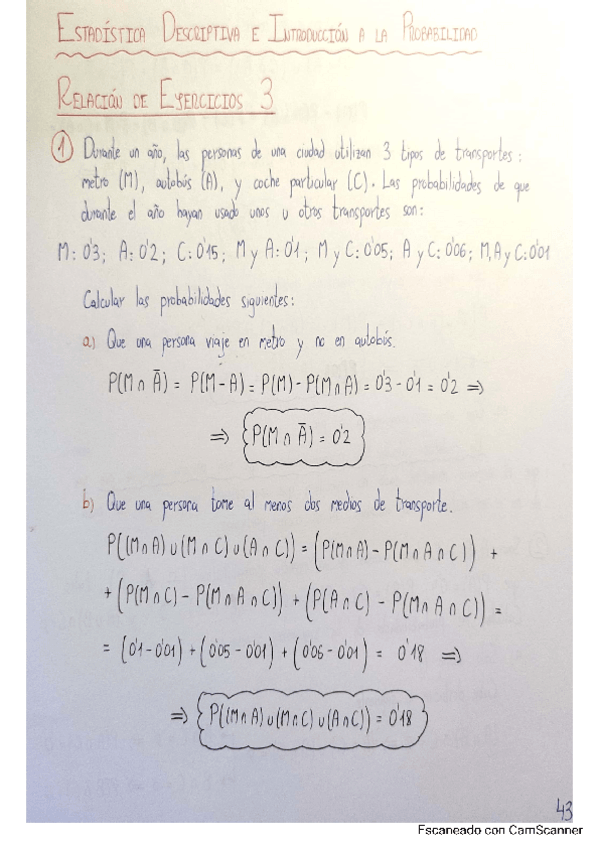 ESTADÍSTICA DESCRIPTIVA E INTRODUCCIÓN A LA PROBABILIDAD
RELACIÓN DE EJERCICIOS 3
1 Durante un año, las personas de una ciudad utilizan 3 tipos de transportes:
metro (M), autobús (A), y coche particular (C). Las probabilidades de que
durante el año hayan usado unos u otros transportes son:
M: 0'3; A: 0'2; C: 0'15; M y A: 0'1; M y C: 0'05; A y C: 0'06; M, A y C: 0'01
Calcular las probabilidades siguientes:
a) Que una persona viaje en metro y no en autobús.
P(M ∩ Ā) = P(M - A) = P(M) - P(M ∩ A) = 0'3 - 0'1 = 0'2 ⇒
⇒ P(M ∩ Ā) = 0'2
b) Que una persona tome al menos dos medios de transporte.
P((M ∩ A) ∪ (M ∩ C) ∪ (A ∩ C)) = (P(M ∩ A) - P(M ∩ A ∩ C)) +
+ (P(M ∩ C) - P(M ∩ A ∩ C)) + (P(A ∩ C) - P(M ∩ A ∩ C)) =
= (0'1 - 0'01) + (0'05 - 0'01) + (0'06 - 0'01) = 0'18 ⇒
⇒ P((M ∩ A) ∪ (M ∩ C) ∪ (A ∩ C)) = 0'18
43
Escaneado con CamScanner